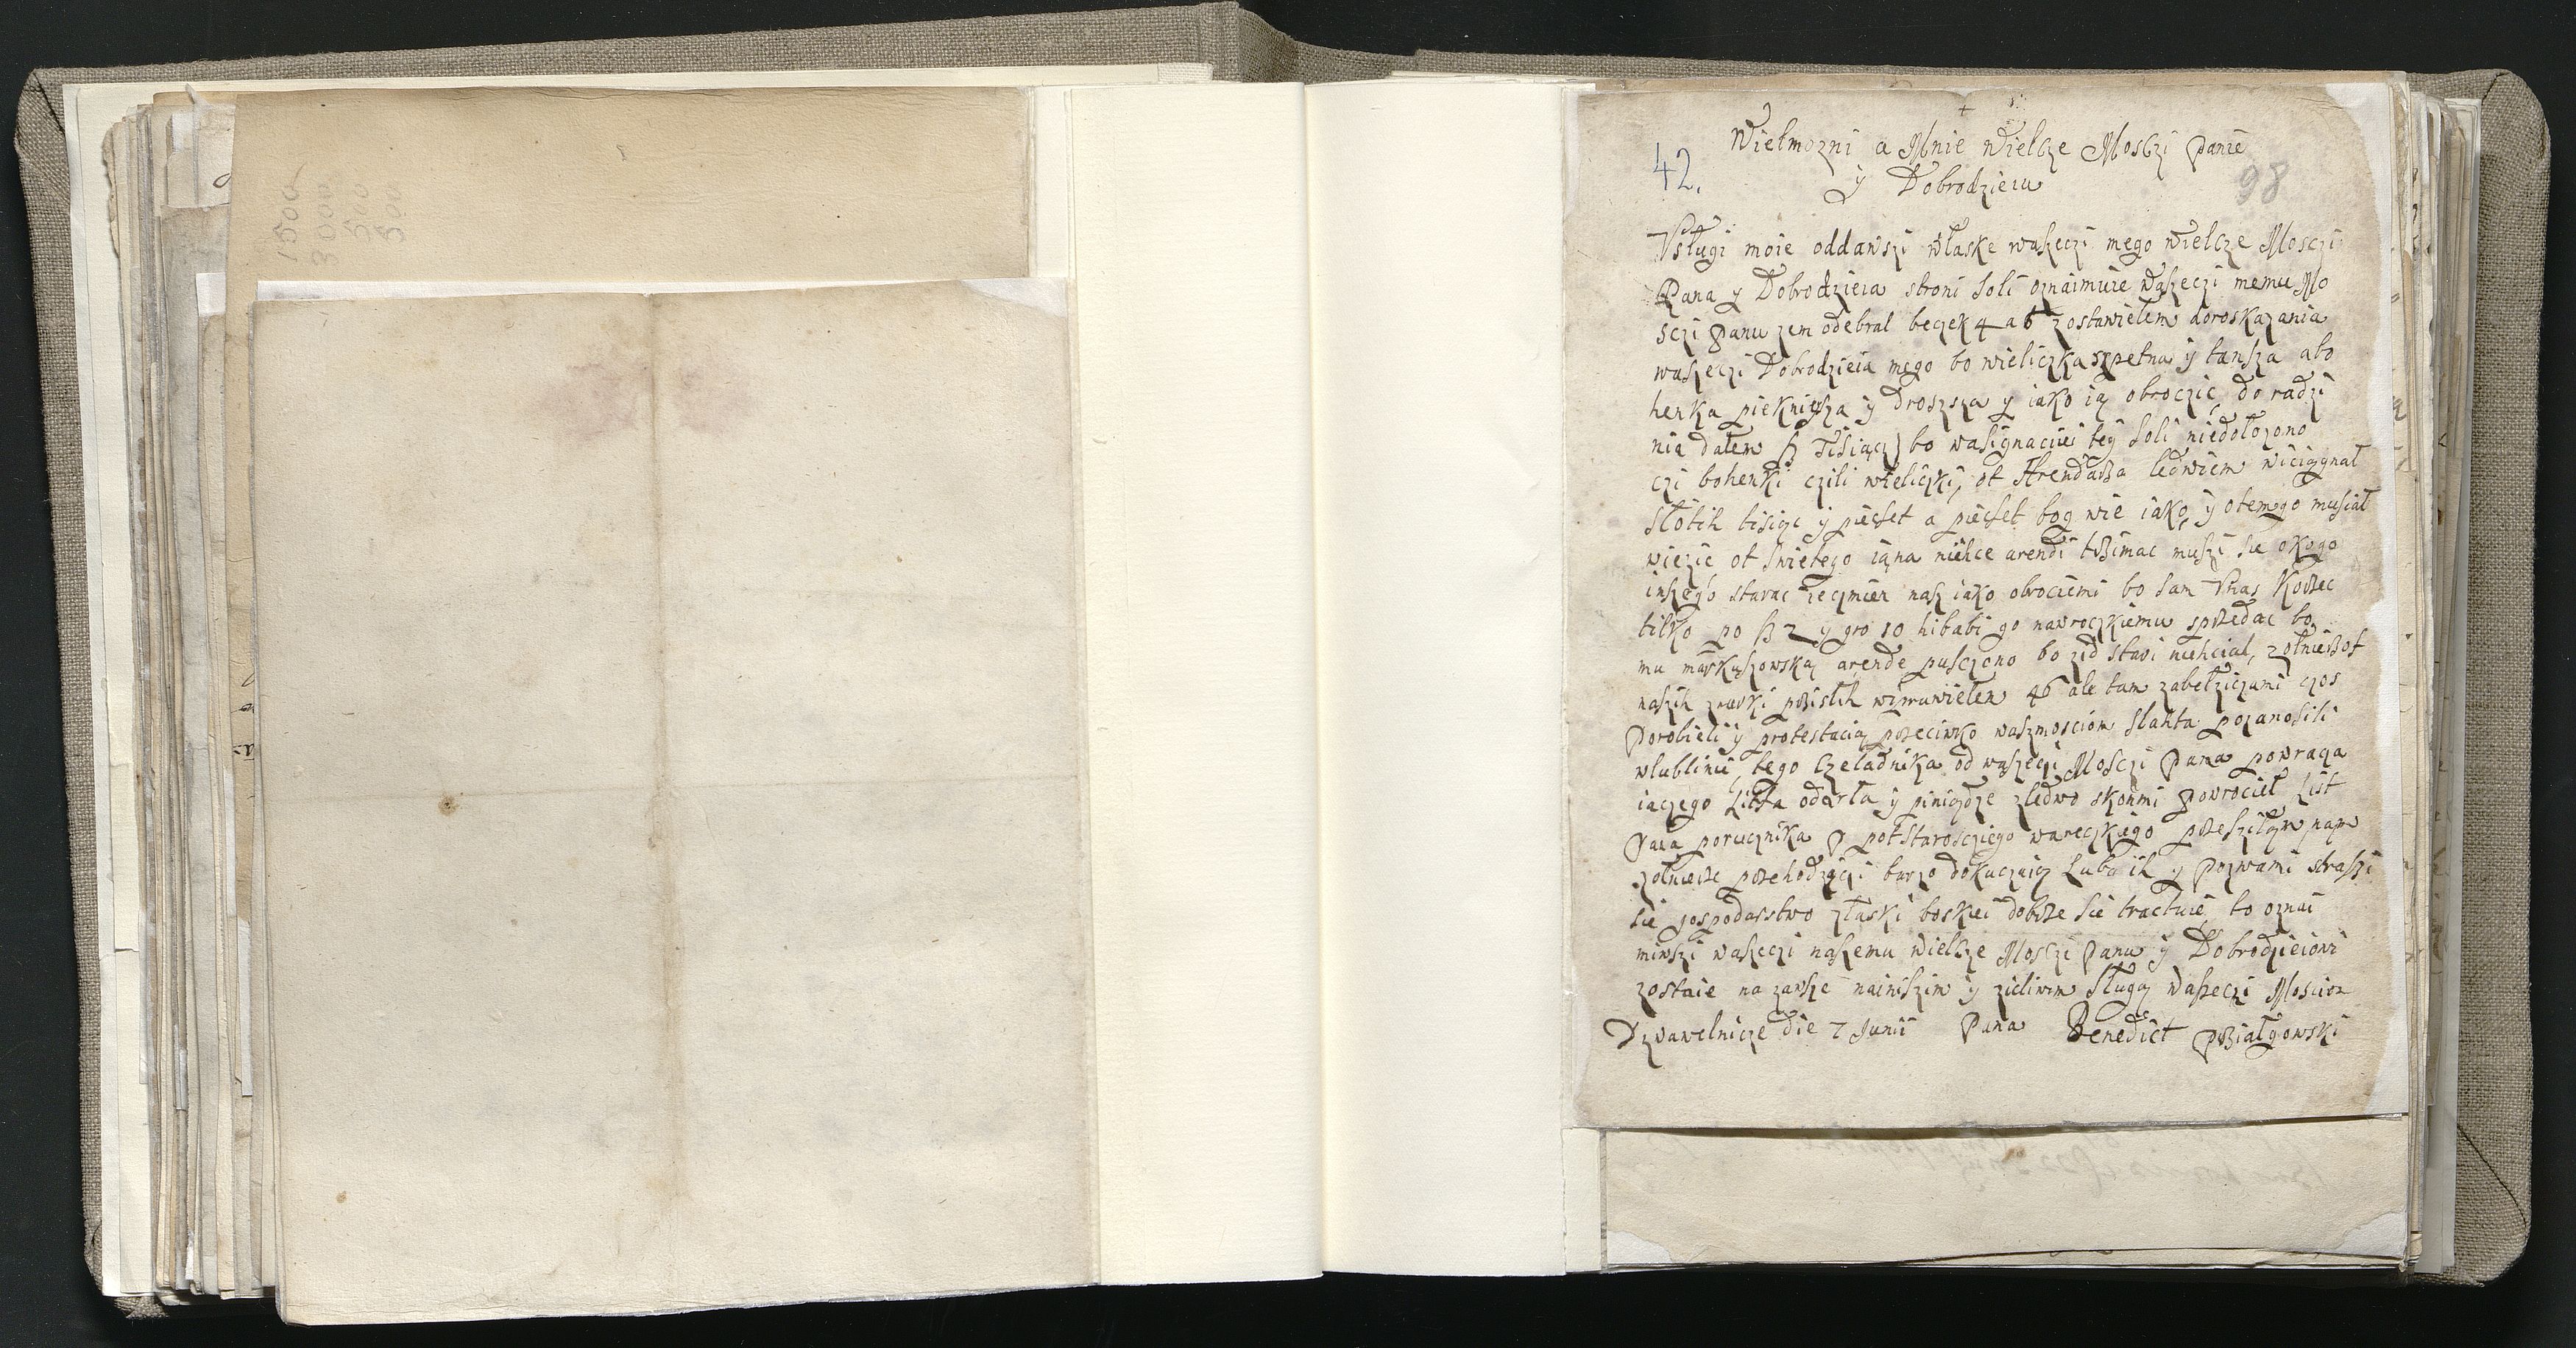 1500
3000
500
500
+
Wielmozni a Mnie Wielcze Mosczi Panie
42.
y Dobrodzieiu
98
Vsługi moie oddawszi właske waszeczi mego wielcze Mosczi
Pana y Dobrodzieia stroni soli oznaimuie waszeczi memu Mo
sczi panu zem odebral beczek 4 a 6 zostawiełem doroskazania
waszeczi Dobrodzieia mego bo wieliczka szpetna y tansza abo
henka piekniesza y droszsza y iako ią obroczic do radzi
nia dałem tisiącz bo wasignaciiei tey soli niedołozono
czi bohenki czili wieliczki, ot Arendarza ledwiem wiciągnał
słotih tisiąc y piecset a piecset bog wie iako y otemgo musiał
wiezic ot swietego iąna niehce arendi trzimac muszi sie okogo
inszego starac ieczmien nasz iako obrociemi bo sam Vnas Korzec
tilko po 2 y gro 10 hibabi go nawroczkiemu sprzedac bo
mu markuszowską arende pusczono bo zid stari niehciał, zołnierzof
naszih znarki wimuwiełem 46 ale tam zabełziczami czos
Porobieli y protestacią przeciwko waszmosciom slahta pozanosili
wlublinie, tego Czeladnika od waszeczi Mosczi Pana powraca
iaczego odarła y piniądze zledwo skonmi powrociel List
Pana porucznika P potstarosciego wareczkiego
zołnierze przehodzączi barzo dokuczaią y Pozwami straszi
sie gospodarstwo złaski boskiei dobrze sie tractuie to oznai
miwszi waszeczi naszemu Wielcze Mosczi Panu y Dobrodzieiowi
zostaie na zawsze nainiszim y zicliwim sługą Waszeczi Moscion
Dzwawelnicze die 7 Junii Pana Benedict Prziałgowski